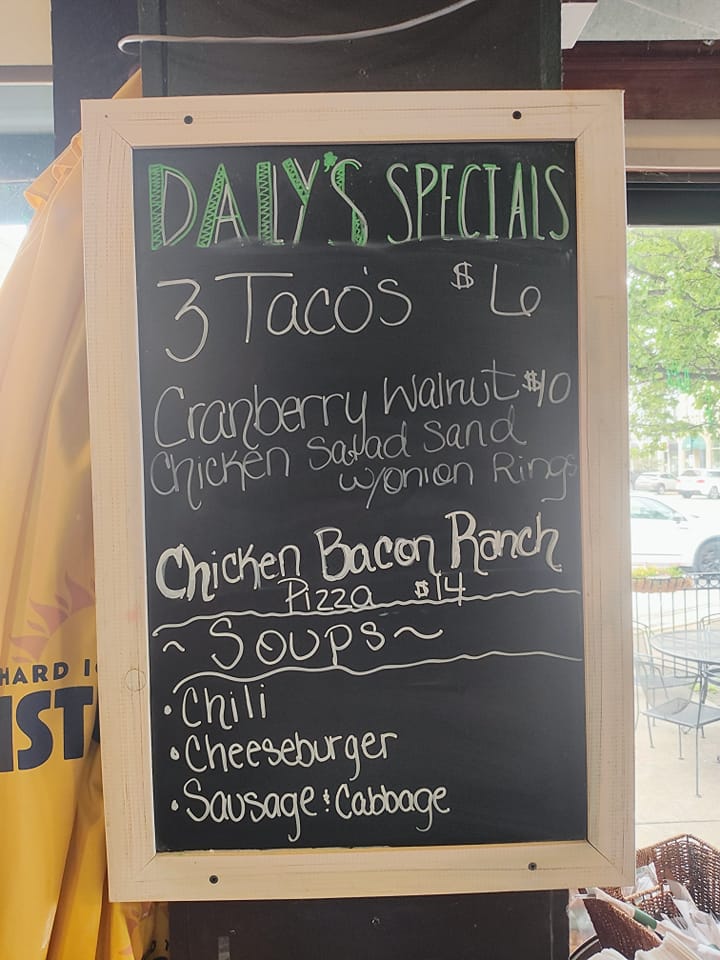 DALY'S SPECIALS
3 Taco's $6
Cranberry Walnut $10
Chicken Salad Sand
w/onion Rings
Chicken Bacon Ranch
Pizza $14
~ Soups ~
• Chili
• Cheeseburger
• Sausage & Cabbage
HARD